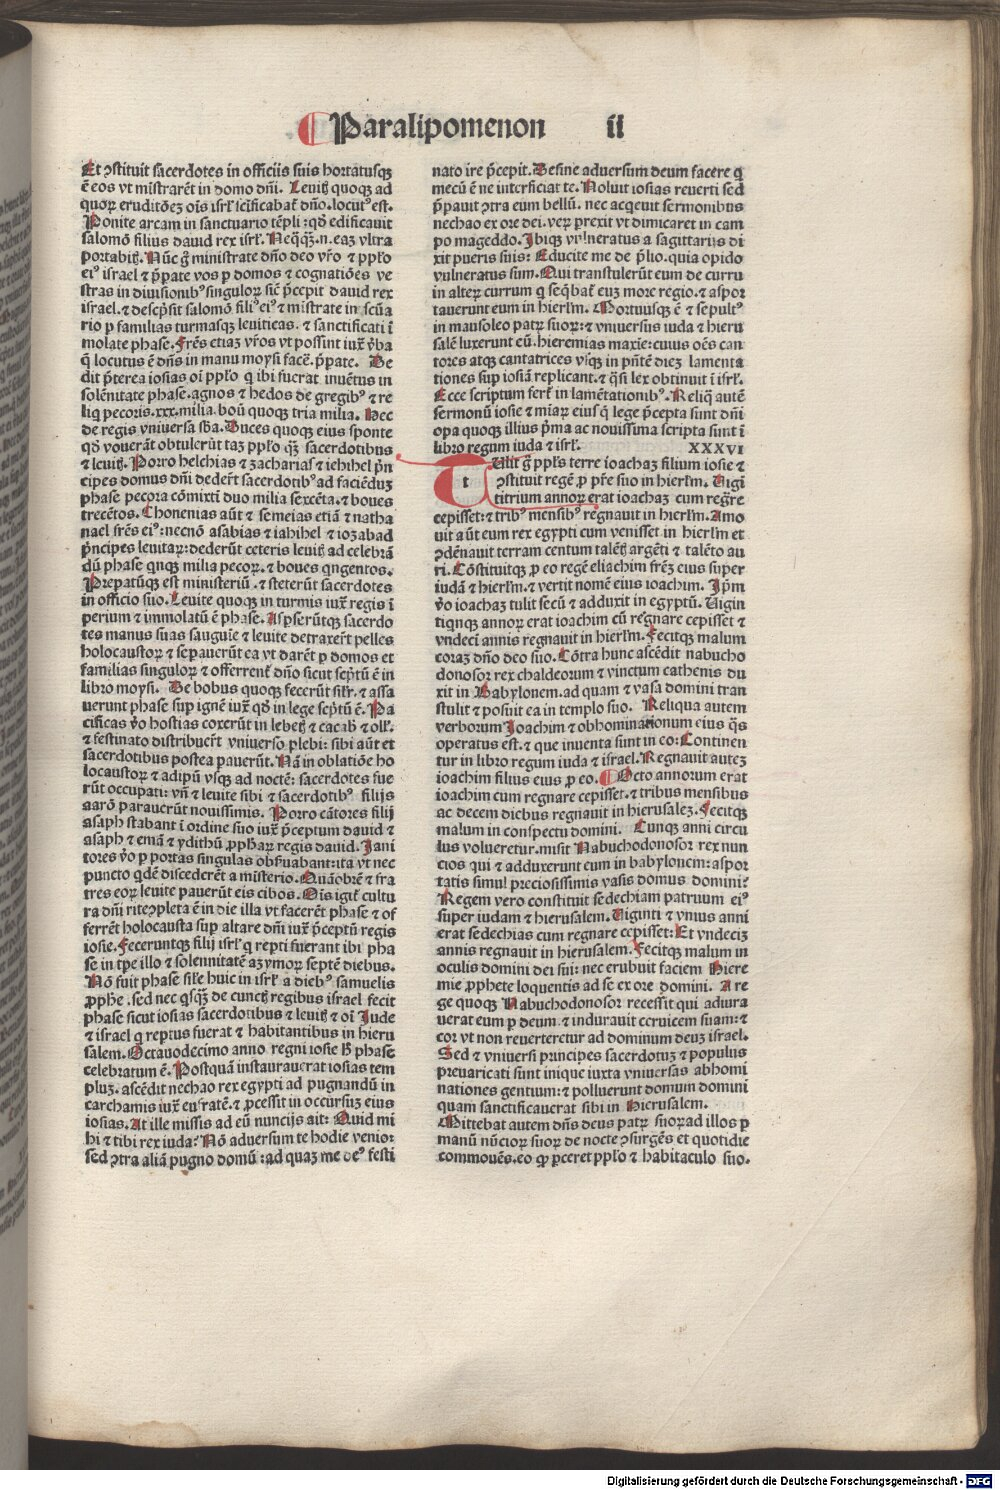 Paralipomenon ii
Et ꝯstituit sacerdotes in officiis suis hortatusqꝫ
ē eos vt mīstrarēt in domo dñi. Leuitꝭ quoqꝫ ad
quoꝝ eruditōeꝫ oīs isrl̄ scīficabat̄ dño. locutꝰ est.
Ponite arcam in sanctuario tēpli : qd̄ edificauit
salomō filius dauid rex isrl̄. Neqꝫ̄qꝫ .n. eaꝫ vltra
portabitꝭ. Nūc g̊ ministrate dño deo vr̄o ⁊ pplo
eiꝰ israel ⁊ p̄pate vos ꝑ domos ⁊ cognatiōes ve
stras in diuisionibꝰ singuloꝝ sic̄ p̄cepit dauid rex
israel. ⁊ descpsit salomō filiꝰ eiꝰ ⁊ mīstrate in scūa
rio ꝑ familias turmasqꝫ leuiticas. ⁊ sanctificati ī
molate phase. Fr̄es etiaꝫ vr̄os vt possint iux̄ v̄ba
q̄ locutus ē dñs in manu moysi facē. p̄pate. De
dit p̄terea iosias oī pplo q ibi fuerat inuētus in
solēnitate phase. agnos ⁊ hedos de gregibꝰ ⁊ re
liq pecoris. xxx. milia. boū quoqꝫ tria milia. Hec
de regis vniuersa sb̄a. Duces quoqꝫ eius sponte
qd̄ vouerāt obtulerūt taꝫ pplo qꝫ sacerdotibus
⁊ leuitꝭ. Porro helchias ⁊ zacharias ⁊ iehihel p̄n
cipes domus dñi dedert̄ sacerdotibꝰ ad faciēduꝫ
phase pecora cōmixti duo milia sexcēta. ⁊ boues
trecētos. Chonenias aūt ⁊ semeias etiā ⁊ natha
nael fr̄es eiꝰ : necnō asabias ⁊ iahihel ⁊ iozabad
p̄ncipes leuitaꝝ : dederūt ceteris leuitꝭ ad celebrā
dū phase qnqꝫ milia pecoꝝ. ⁊ boues qngentos.
Prepatūqꝫ est ministeriū. ⁊ steterūt sacerdotes
in officio suo. Leuite quoqꝫ in turmis iux̄ regis ī
perium ⁊ immolatū ē phase. Asperserūtqꝫ sacerdo
tes manus suas sanguīe ⁊ leuite detraxert̄ pelles
holocaustoꝝ ⁊ sepauerūt ea vt darēt ꝑ domos et
familias singuloꝝ ⁊ offerrent̄ dño sicut scptū ē in
libro moysi. De bobus quoqꝫ fecerūt sil̄r. ⁊ assa
uerunt phase sup ignē iux̄ qd̄ in lege scptū ē. Pa
cificas v̄o hostias coxerūt in lebetꝭ ⁊ cacabꝭ ⁊ ollꝭ.
⁊ festinato distribuert̄ vniuerso plebi : sibi aūt et
sacerdotibus postea pauerūt. Nā in oblatiōe ho
locaustoꝝ ⁊ adipū vsqꝫ ad noctē : sacerdotes fue
rūt occupati : vn̄ ⁊ leuite sibi ⁊ sacerdotibꝰ filijs
aarō parauerūt nouissimis. Porro cātores filij
asaph stabant ī ordine suo iux̄ p̄ceptum dauid ⁊
asaph ⁊ emā ⁊ ydithū ꝓphaꝝ regis dauid. Jani
tores v̄o ꝑ portas singulas obseruabant : ita vt nec
puncto qdē discederēt a misterio. Quāobrē ⁊ fra
tres eoꝝ leuite pauerūt eis cibos. Oīs igit̄ cultu
ra dñi rite ꝯpleta ē in die illa vt facerēt phase ⁊ of
ferrēt holocausta sup altare dñi iux̄ p̄ceptū regis
iosie. Feceruntqꝫ filij isrl̄ q repti fuerant ibi pha
se in tpe illo ⁊ solennitatē azymoꝝ septē diebus.
Nō fuit phase sil̄e huic in isrl̄ a diebꝰ samuelis
ꝓphe. sed nec qsqꝫ de cunctꝭ regibus israel fecit
phase sicut iosias sacerdotibus ⁊ leuitꝭ ⁊ oī Jude
⁊ israel q reptus fuerat ⁊ habitantibus in hieru
salem. Octauodecimo anno regni iosie h̄ phase
celebratum ē. Postquā instaurauerat iosias tem
pluꝫ. ascēdit nechao rex egypti ad pugnandū in
carchamis iux̄ eufratē. ⁊ ꝓcessit in occursuꝫ eius
iosias. At ille missis ad eū nuncijs ait : Quid mi
hi ⁊ tibi rex iuda? Nō aduersum te hodie venio :
sed ꝯtra aliā pugno domū : ad quaꝫ me deꝰ festi
nato ire p̄cepit. Desine aduersum deum facere q
mecū ē ne interficiat te. Noluit iosias reuerti sed
p̄pauit ꝯtra eum bellū. nec acqeuit sermonibus
nechao ex ore dei. veꝝ prexit vt dimicaret in cam
po mageddo. Ibiqꝫ vulneratus a sagittariis di
xit pueris suis : Educite me de p̄lio. quia opido
vulneratus sum. Qui transtulerūt eum de curru
in alteꝝ currum q seq̄bat̄ euꝫ more regio. ⁊ aspor
tauerunt eum in hierl̄m. Mortuusqꝫ ē ⁊ sepultꝰ
in mausoleo patꝝ suoꝝ : ⁊ vniuersus iuda ⁊ hieru
salē luxerunt eū. hieremias maxie : cuius oēs can
tores atqꝫ cantatrices vsqꝫ in pn̄tē dieꝫ lamenta
tiones sup iosiā replicant. ⁊ q̄si lex obtinuit ī isrl̄.
Ecce scriptum fert̄ in lamētationibꝰ. Reliq autē
sermonū iosie ⁊ mīaꝝ eiusꝗ lege p̄cepta sunt dñi
opa quoqꝫ illius p̄ma ac nouissima scripta sunt ī
libro regum iuda ⁊ isrl̄. XXXVI
t
Ulit g̊ ppl̄s terre ioachaꝫ filium iosie ⁊
ꝯstituit regē ꝓ pr̄e suo in hierl̄m. Uigī
titrium annoꝝ erat ioachaꝫ cum regr̄e
cepisset : ⁊ tribꝰ mensibꝰ regnauit in hierl̄m. Amo
uit aūt eum rex egypti cum venisset in hierl̄m et
ꝯdēnauit terram centum talētꝭ argēti ⁊ talēto au
ri. Cōstituitqꝫ ꝓ eo regē eliachim fr̄eꝫ eius super
iudā ⁊ hierl̄m. ⁊ vertit nomē eius ioachim. Ip̄m
v̄o ioachaꝫ tulit secū ⁊ adduxit in egyptū. Uigin
tiqnqꝫ annoꝝ erat ioachim cū regnare cepisset ⁊
vndeci annis regnauit in hierl̄m. Fecitqꝫ malum
coraꝫ dño deo suo. Cōtra hunc ascēdit nabucho
donosor rex chaldeorum ⁊ vinctum cathenis du
xit in Babylonem. ad quam ⁊ vasa domini tran
stulit ⁊ posuit ea in templo suo. Reliqua autem
verborum Joachim ⁊ obhominationum eius q̄s
operatus est. ⁊ que inuenta sunt in eo : Continen
tur in libro regum iuda ⁊ israel. Regnauit auteꝫ
ioachim filius eius ꝓ eo. Octo annorum erat
ioachim cum regnare cepisset. ⁊ tribus mensibus
ac decem diebus regnauit in hierusaleꝫ. Fecitqꝫ
malum in conspectu domini. Cunqꝫ anni circu
lus volueretur. misit Nabuchodonosor rex nun
cios qui ⁊ adduxerunt eum in babylonem : aspor
tatis simul preciosissimis vasis domus domini :
Regem vero constituit sedechiam patruum eiꝰ
super iudam ⁊ hierusalem. Uiginti ⁊ vnius anni
erat sedechias cum regnare cepisset : Et vndeciꝫ
annis regnauit in hierusalem. Fecitqꝫ malum in
oculis domini dei sui : nec erubuit faciem Hiere
mie ꝓphete loquentis ad se ex ore domini. A re
ge quoqꝫ Nabuchodonosor recessit qui adiura
uerat eum ꝑ deum. ⁊ indurauit ceruicem suam : ⁊
cor vt non reuerteretur ad dominum deuꝫ israel.
Sed ⁊ vniuersi principes sacerdotuꝫ ⁊ populus
preuaricati sunt inique iuxta vniuersas abhomi
nationes gentium : ⁊ polluerunt domum domini
quam sanctificauerat sibi in Hierusalem.
Mittebat autem dñs deus patꝝ suoꝝ ad illos ꝑ
manū nūcioꝝ suoꝝ de nocte ꝯsurgēs et quotidie
commouēs. eo ꝙ ꝑceret pplo ⁊ habitaculo suo.
Digitalisierung gefördert durch die Deutsche Forschungsgemeinschaft - DFG